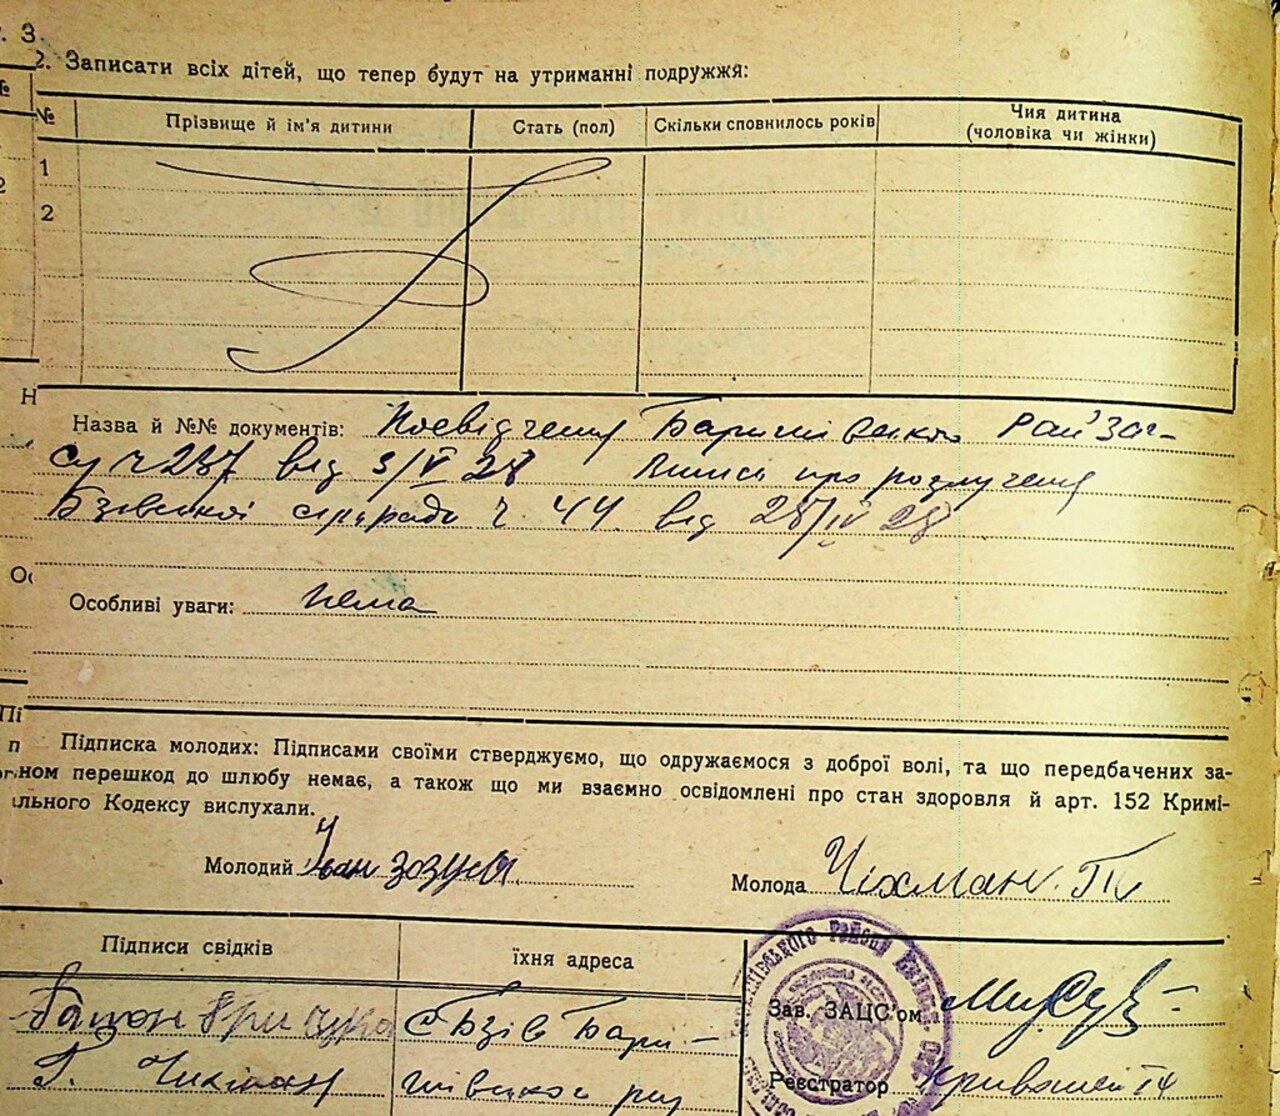 2. Записати всіх дітей, що тепер будут на утриманні подружжя:
№ Прізвище й ім'я дитини Стать (пол) Скільки сповнилось років Чия дитина
(чоловіка чи жінки)
1
2
Назва й №№ документів: Посвідчення Баришівського Рай'заг-
су ч 237 від 3/V 28 Випись про розлучення
Бзівської сільради ч. 44 від 28/IV 28
Особливі уваги: нема
Підписка молодих: Підписами своїми стверджуємо, що одружаємося з доброї волі, та що передбачених за-
ном перешкод до шлюбу немає, а також що ми взаємно освідомлені про стан здоровля й арт. 152 Кримі-
льного Кодексу вислухали.
Молодий Іван Зозуля
Молода Чіхман. П
Підписи свідків їхня адреса
с Бзів Бари-
шівського рну
Зав. ЗАЦС'ом
Реєстратор